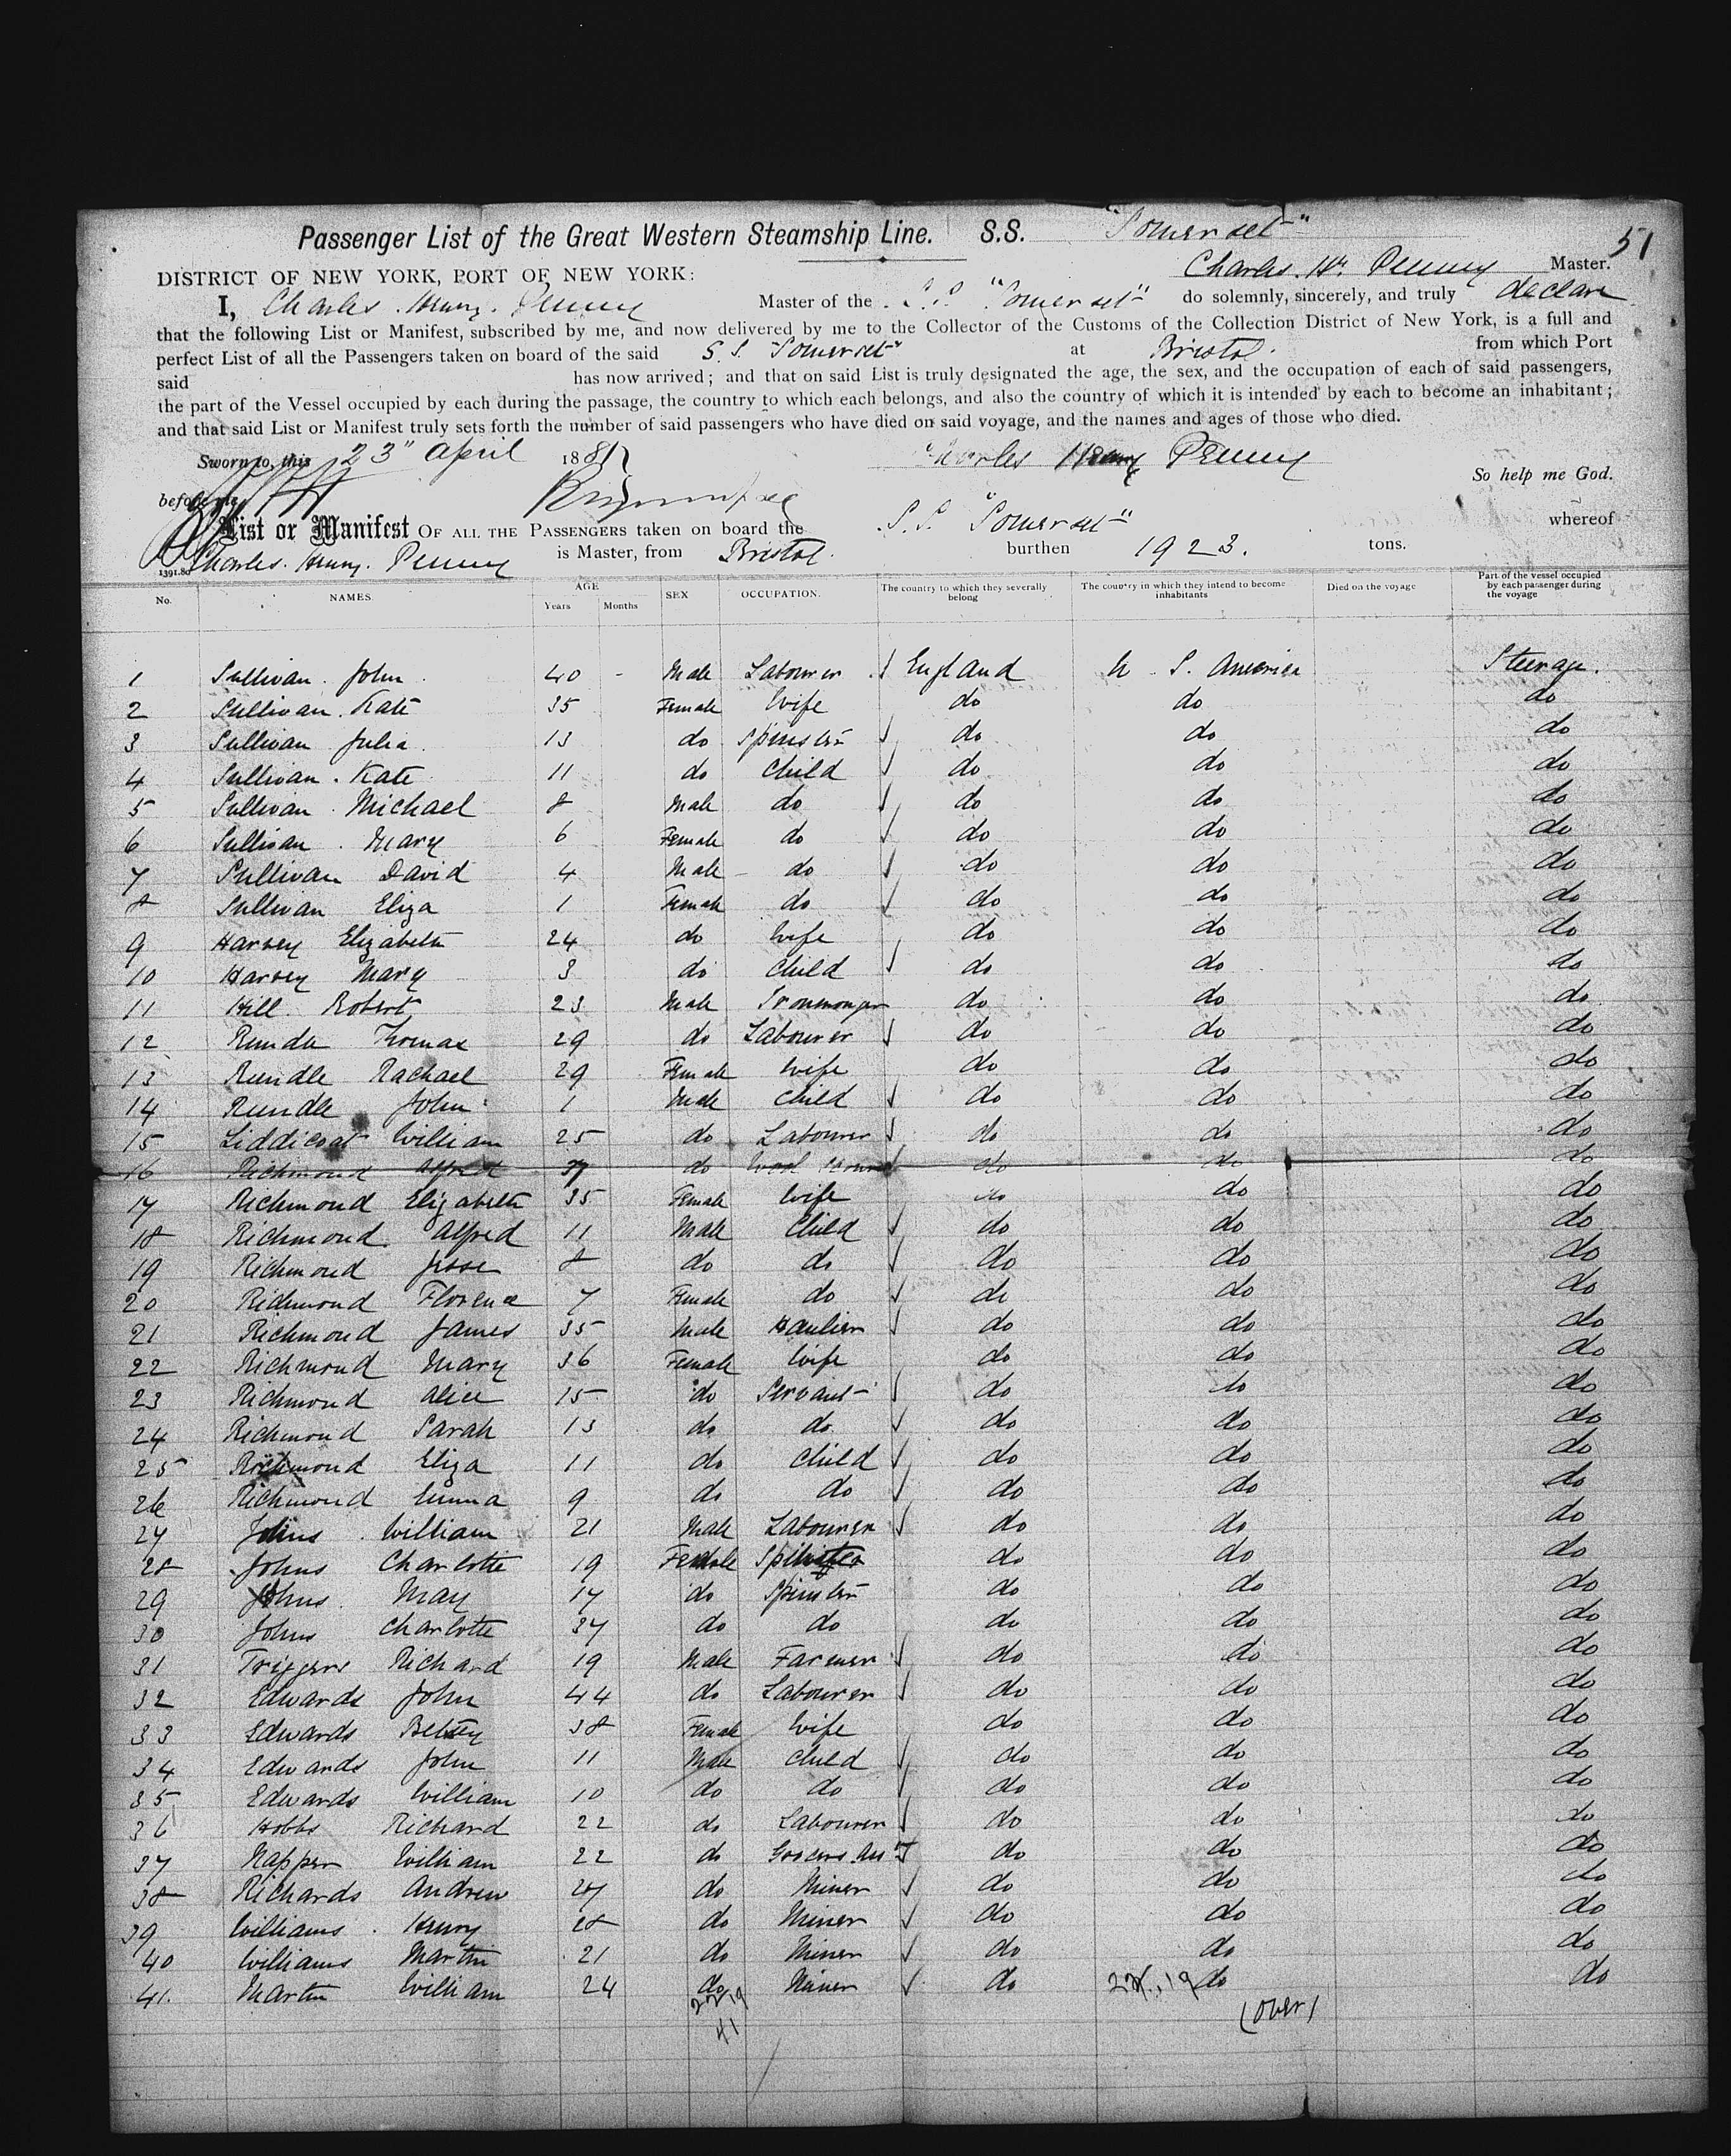 Passenger List of the Great Western Steamship Line. S.S. "Somerset"
51
DISTRICT OF NEW YORK, PORT OF NEW YORK: Charles. Hy. Penny Master.
I, Charles. Henry. Penny Master of the S.S. "Somerset" do solemnly, sincerely, and truly declare
that the following List or Manifest, subscribed by me, and now delivered by me to the Collector of the Customs of the Collection District of New York, is a full and
perfect List of all the Passengers taken on board of the said S.S. "Somerset" at Bristol. from which Port
said has now arrived; and that on said List is truly designated the age, the sex, and the occupation of each of said passengers,
the part of the Vessel occupied by each during the passage, the country to which each belongs, and also the country of which it is intended by each to become an inhabitant;
and that said List or Manifest truly sets forth the number of said passengers who have died on said voyage, and the names and ages of those who died.
Sworn to, this 23" April 1881 Charles Henry Penny
So help me God.
before me
List or Manifest OF ALL THE PASSENGERS taken on board the S.S. "Somerset" whereof
Charles. Henry. Penny is Master, from Bristol. burthen 1923. tons.
1391.80
No. NAMES. AGE Years Months SEX OCCUPATION. The country to which they severally belong The country in which they intend to become inhabitants Died on the voyage Part of the vessel occupied by each passenger during the voyage
1 Sullivan. John. 40 - Male Labourer England U.S. America Steerage.
2 Sullivan. Kate 35 Female Wife do do do
3 Sullivan Julia. 13 do Spinster do do do
4 Sullivan. Kate 11 do Child do do do
5 Sullivan. Michael 8 Male do do do do
6 Sullivan. Mary 6 Female do do do do
7 Sullivan David 4 Male do do do do
8 Sullivan Eliza 1 Female do do do do
9 Harvey Elizabeth 24 do Wife do do do
10 Harvey Mary 3 do Child do do do
11 Hill. Robert 23 Male Ironmonger do do do
12 Rundle Thomas 29 do Labourer do do do
13 Rundle Rachael 29 Female Wife do do do
14 Rundle John 1 Male Child do do do
15 Liddicoat William 25 do Labourer do do do
16 Richmond Alfred 37 do Wool do do do
17 Richmond Elizabeth 35 Female Wife do do do
18 Richmond Alfred 11 Male Child do do do
19 Richmond Jesse 8 do do do do do
20 Richmond Florence 7 Female do do do do
21 Richmond James 35 Male Haulier do do do
22 Richmond Mary 36 Female Wife do do do
23 Richmond Alice 15 do Servant do do do
24 Richmond Sarah 13 do do do do do
25 Richmond Eliza 11 do Child do do do
26 Richmond Emma 9 do do do do do
27 Johns William 21 Male Labourer do do do
28 Johns Charlotte 19 Female do do do
29 Johns. May 17 do Spinster do do do
30 Johns Charlotte 37 do do do do do
31 Triggers Richard 19 Male Farmer do do do
32 Edwards John 44 do Labourer do do do
33 Edwards Betsey 38 Female Wife do do do
34 Edwards John 11 Male Child do do do
35 Edwards William 10 do do do do do
36 Hobbs Richard 22 do Labourer do do do
37 Napper William 22 do Grocers Ast do do do
38 Richards Andrew 27 do Miner do do do
39 Williams. Henry 28 do Miner do do do
40 Williams Martin 21 do Miner do do do
41. Martin William 24 do Miner do do do
22 19
41
(over)